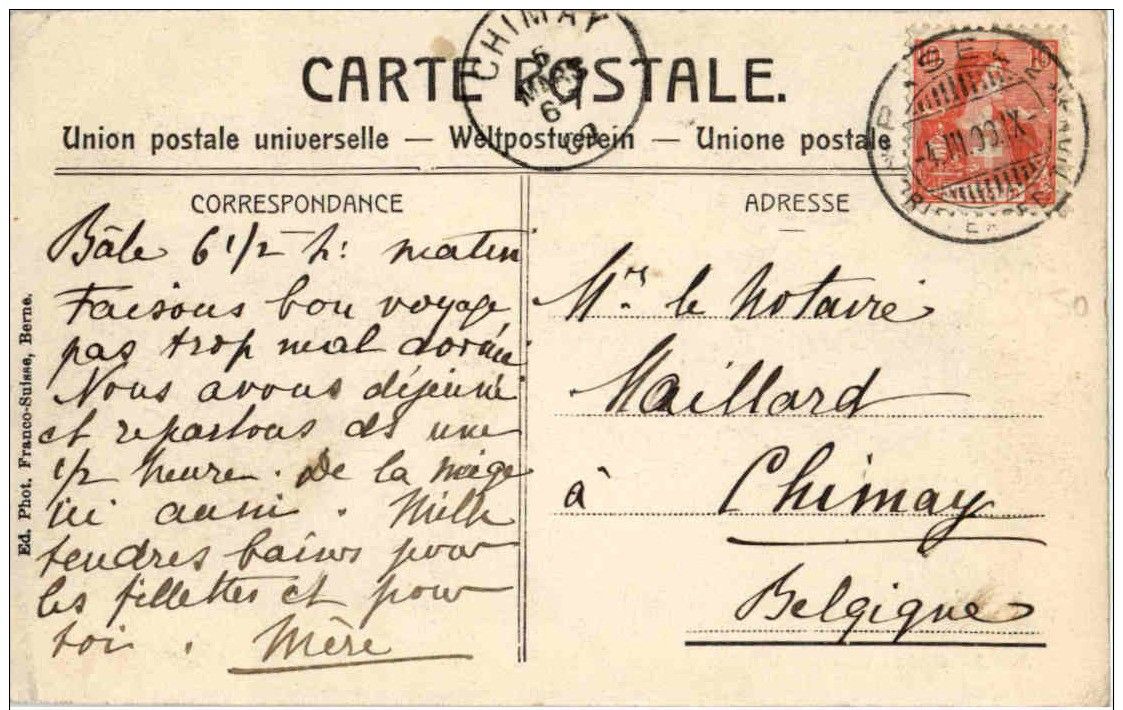 CARTE POSTALE.
Union postale universelle — Weltpostverein — Unione postale
CHIMAY
5
MARS
6-7
BASEL
CORRESPONDANCE
ADRESSE
Bâle 6 1/2 h: matin
Faisons bon voyage,
pas trop mal dormi
Nous avons déjeuné
et repartons ds une
1/2 heure. De la neige
ici aussi. Mille
tendres baisers pour
les fillettes et pour
toi. Mère
Mr. le Notaire
Maillard
à Chimay
Belgique
Ed. Phot. Franco-Suisse, Berne.